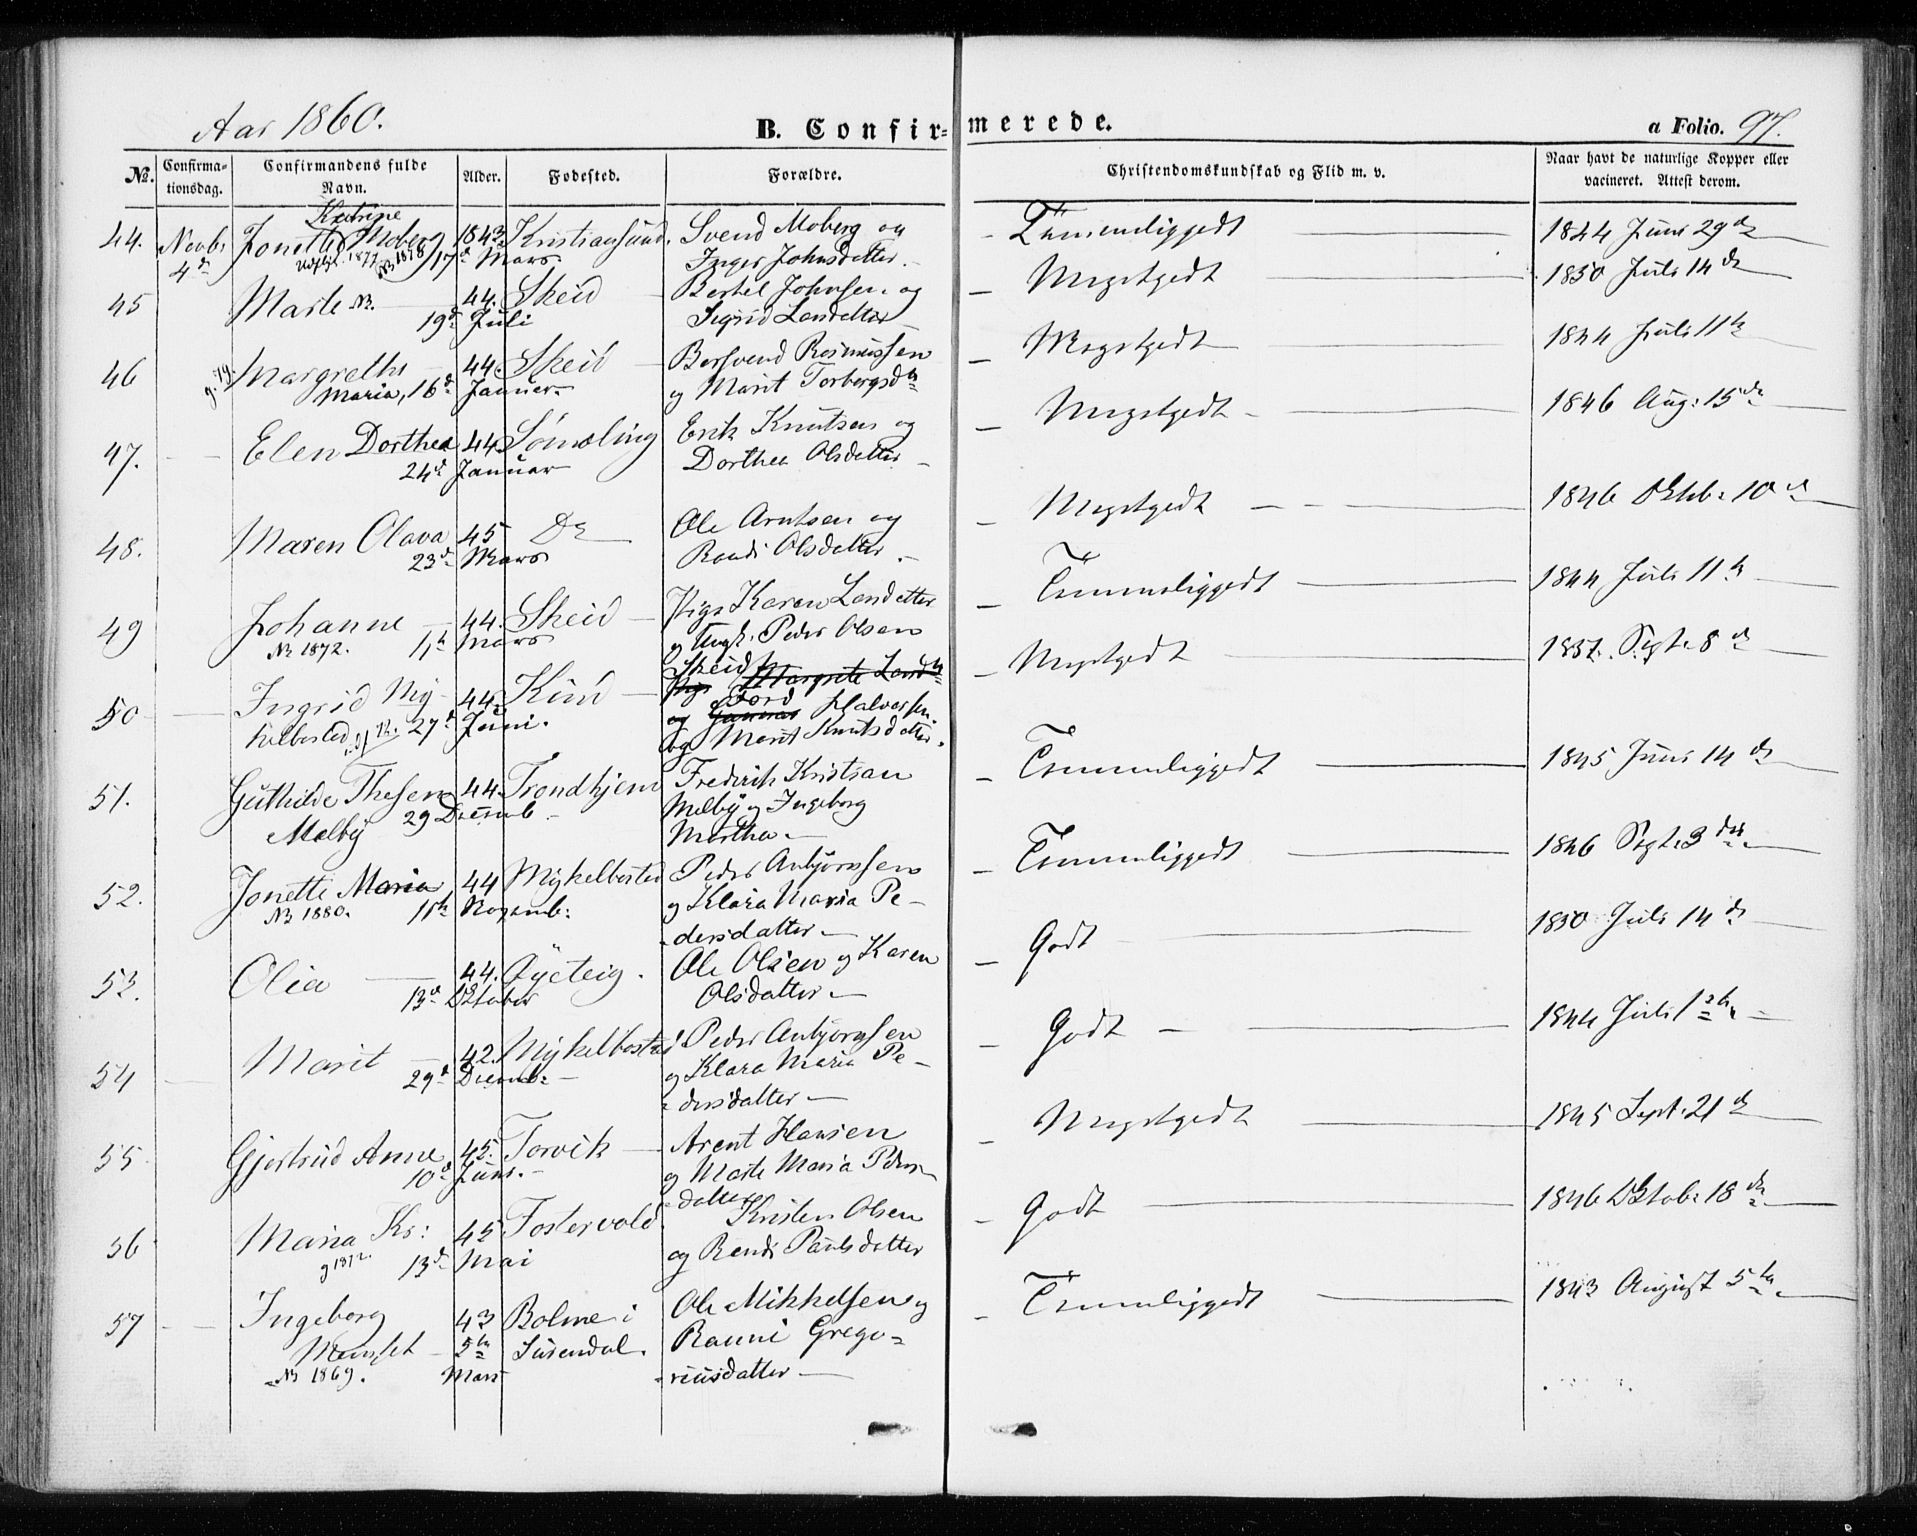 Aar 1860.
B. Confirmerede.
a Folio. 97.
No.
Confirmationsdag.
Confirmandens fulde Navn.
Alder.
Fødested.
Forældre.
Christendomskundskab og Flid m. v.
Naar havt de naturlige Kopper eller vacineret. Attest derom.
44. Novbr 4de Jonette Katrine Moberg 1843 Kristiansund. Svend Moberg og - Tümmeliggodt 1844 Juni 29de
1877 NB 1878 17de Mars Inger Johnsdatter.
45 Marte NB. 44. Skeid Bertel Johnsen og - Megetgodt 1850 Juli 14de
19de Juli Sigrid Larsdatter
46 Margrethe 44. Skeid Bersvend Rasmussen - Megetgodt 1844 Juli 11te
Maria, 16de Januar og Marit Torbergsdtr
47. Elen Dorthea 44. Erik Knutsen og - Megetgodt 1846 Aug: 15de
24de Januar Dorthea Olsdatter
48. Maren Olava 45 Do Ole Arntsen og - Megetgodt 1846 Oktb: 10de
23de Mars Randi Olsdatter.
49 Johanne 44. Skeid Pige Karen Larsdatter - Tømmeliggodt 1844 Juli 11te
NB 1872. 1ste Mars og Ungk. Peder Olsen
Skeid
50 Ingrid My- 44. Pige Margrete Larsdtr - Megetgodt 1857. Sept. 8de
kelbostad 27de Juni. og Tord Halvorsen.
og Marit Knutsdatter.
51. Guthilde Thesen 44. Trondhjem Frederik Kristian - Tømmeliggodt 1845 Juni 14de
Melby 29 Decemb. Melby og Ingeborg
Martha
52. Jonette Maria 44 Mykelbostad Peder Anbjørnsen - Tømmeliggodt 1846 Sept. 3die
NB 1880. 11te Novemb: og Klara Maria Pe-
dersdatter
53. Olia 44. Ryeteig. Ole Olsen og Karen - Godt 1850 Juli 14de
13de Oktober Olsdatter
54 Marit 42. Mykelbostad Peder Anbjørnsen - Godt 1844 Juli 1ste
29de Decemb: og Klara Maria Pe-
dersdatter
55 Gjertrud Anne 45. Torvik Arent Hansen - Megetgodt 1845 Sept. 21de
10de Juni. og Marte Maria Peders-
datter
56 Maria Kr: 45 Fostervold. Kristen Olsen - Godt 1846 Oktob: 18de
g 1872. 13de Mai og Randi Paulsdatter
57 Ingeborg 43 Bolme i Ole Mikkelsen og - Tømmeliggodt 1843 August 5te
5te Surendal. Ranni Grego-
NB 1869. Mars riusdatter